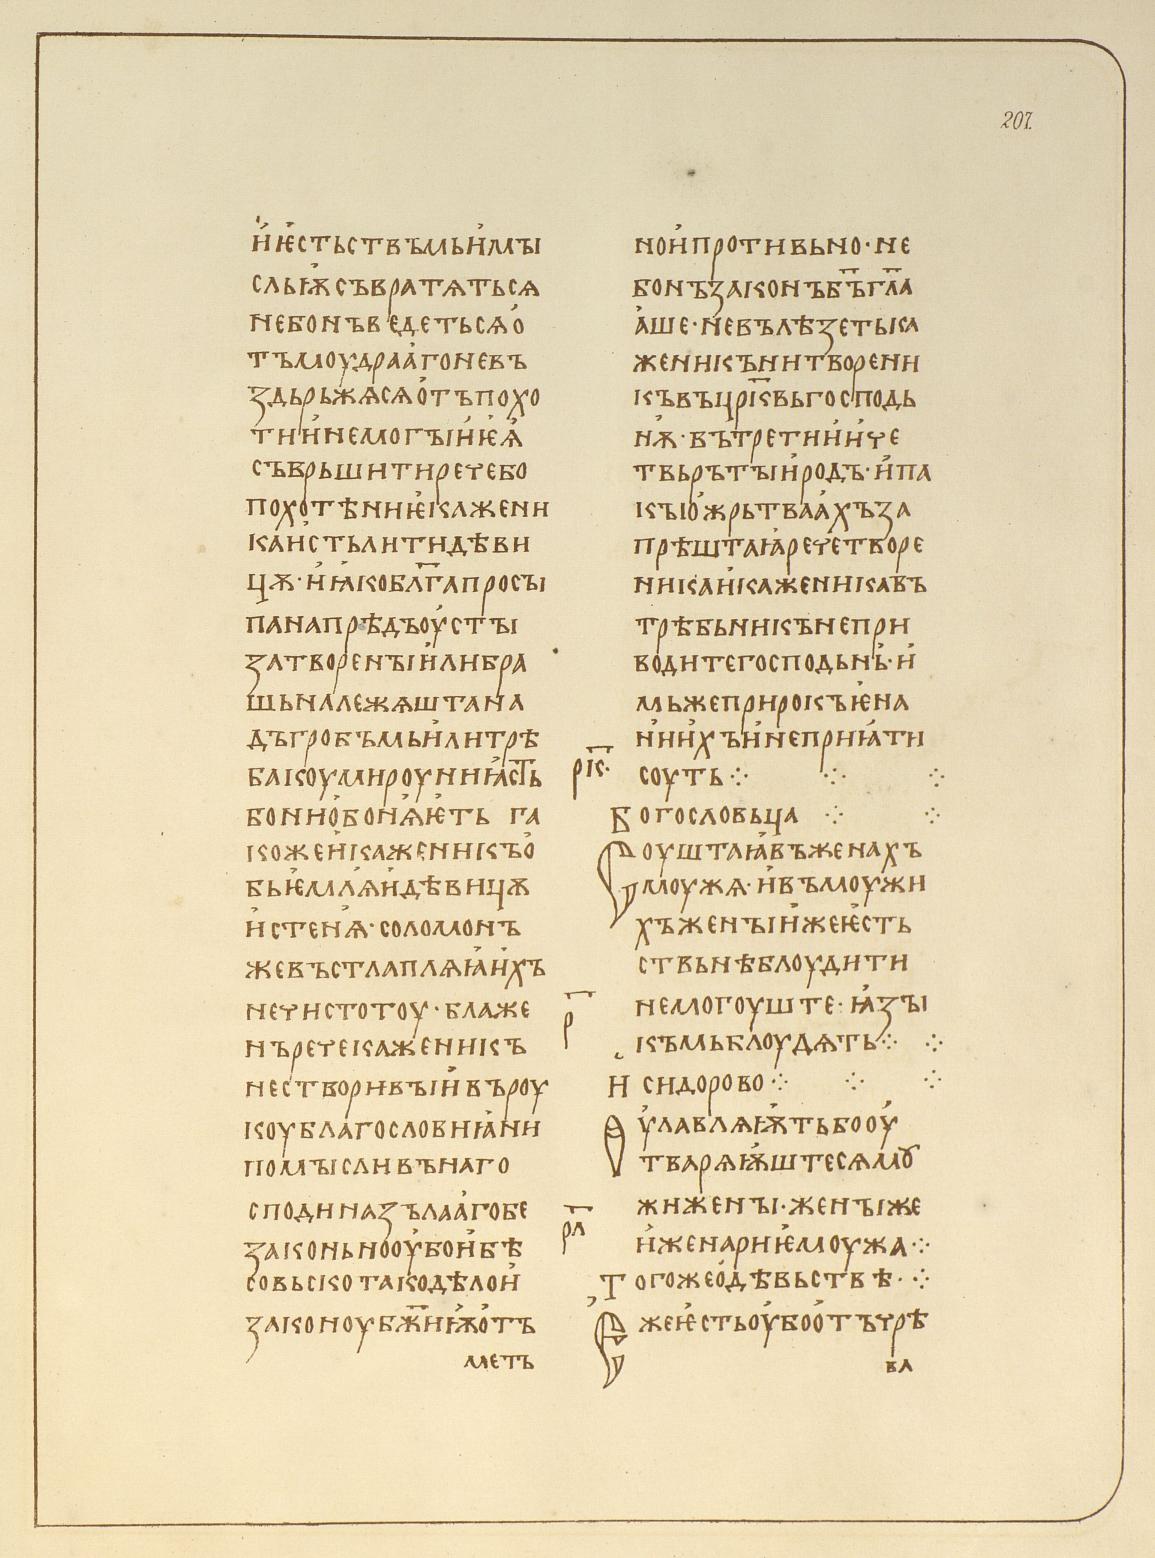 207.
и҆ ѥ҆стьствъмь и҆ мꙑ
сльѭ съвратѧтьсѧ
не бо нъ ведетьсѧ о҆
тъ моудраа҆го не въ
здьрьжѧсѧ о҆тъ похо
ти и҆ не могꙑ и҆ ѥѧ҆
съврьшити рече бо
похо҆тѣниѥ҆ кажени
ка и҆стьлити дѣви
цѫ · и҆ ꙗ҆ко бл҃га просꙑ
пана прѣдъ оу҆стꙑ
затворенꙑи҆ ли бра
шьна лежѧшта на
дъ гробъмь и҆ли трѣ
ба коумироу ни ꙗ҆сть
бо ни о҆боня҆ѥ҆ть га
коже и҆ каженикъ о҆
бьѥ҆млѧ҆ѧ и҆ дѣвицѫ
и҆ стенѧ҆ · соломонъ
же въстлаплѧѩ҆ и҆хъ
нечистотоу · блаже
нъ рече каженикъ
не створивꙑи҆ въ роу
коу благословниꙗ҆ ни
помꙑсли вънаго
сподина зълаа҆го бе
законьно оу҆бо и҆ бѣ
совьско тако дѣло и҆
законоу бж҃ию҆ о҆тъ
меть
но и҆ противьно · не
бо нъ законъ бъ҃ гл҃а
а҆ше · не вълѣзеть ка
женикъ ни творени
къ въ цр҃квь господь
нѫ · въ третии҆ и҆ че
твьрътꙑи҆ родъ · и҆ па
кꙑ о҆ жрьтваа҆хъ за
прѣштаꙗ҆ рече творе
ника и҆ каженика въ
трѣбьникъ не при
водите господьнь҆ · и҆
мьже прирокъ ѥ҆ на
ни и҆хъ и҆ не приꙗ҆ти
соуть ⁘ ⁘ ⁘
р҃к·
Богословьца ⁘ ⁘
Соуштаꙗ҆ въ женахъ
моужѧ · и҆ въ моужи
хъ женꙑ и҆же ѥ҆сть
ствьнѣ блоудити
не могоуште : ѩ҆зꙑ
р҃
къмь блоудѧть ⁘ ⁘
Исидорово ⁘ ⁘ ⁘
Оу҆лавлѧѭ҆ть бо оу҆
тварѧѭ҆штесѧ мꙋ
жи женꙑ · женꙑ же
р҃л
и҆ женариѥ҆ моужа ⁘
Тогоже о҆ дѣвьствѣ · ⁘
Еже ѥ҆сть оу҆бо о҆тъ чрѣ
ва